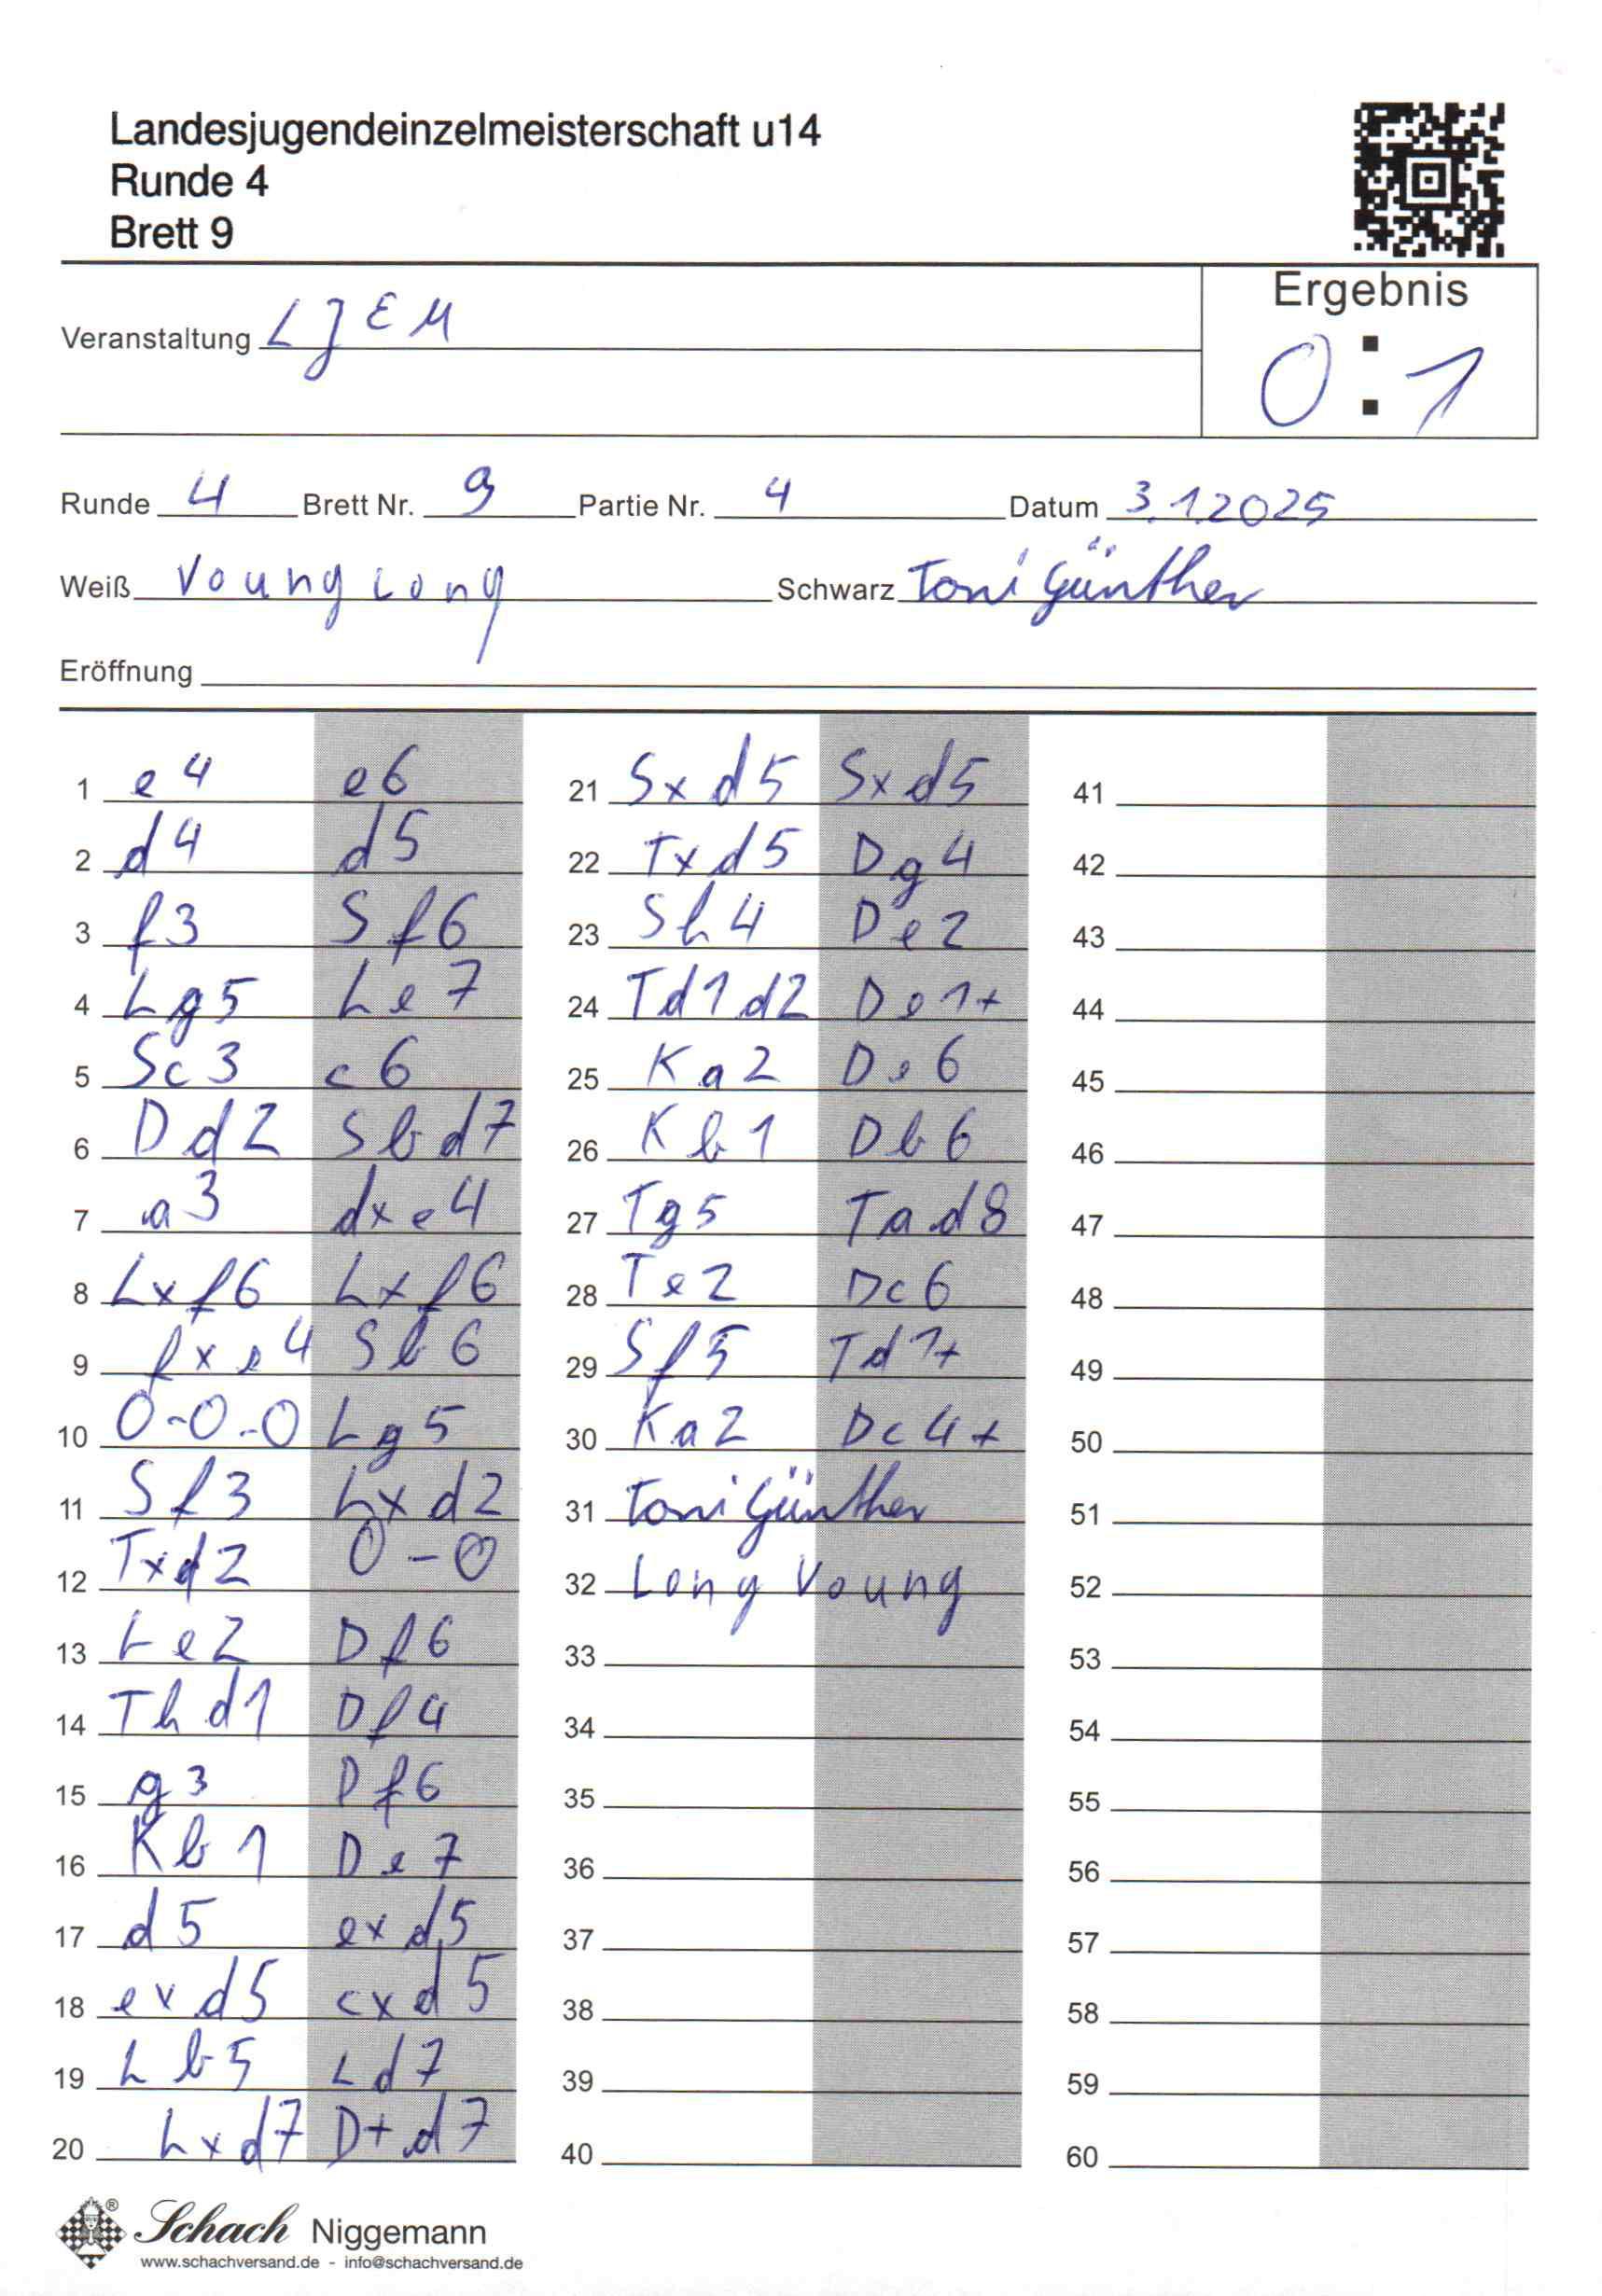 Landesjugendeinzelmeisterschaft u14
Runde 4
Brett 9
Ergebnis
Veranstaltung LJEM
0:1
Runde 4 Brett Nr. 9 Partie Nr. 4 Datum 3.1.2025
Weiß Voung Long Schwarz Toni Günther
Eröffnung
1 e4 e6
2 d4 d5
3 f3 Sf6
4 Lg5 Le7
5 Sc3 c6
6 Dd2 Sbd7
7 a3 dxe4
8 Lxf6 Lxf6
9 fxe4 Sb6
10 0-0-0 Lg5
11 Sf3 Lxd2
12 Txd2 0-0
13 Le2 Df6
14 Thd1 Df4
15 g3 Df6
16 Kb1 De7
17 d5 exd5
18 exd5 cxd5
19 Lb5 Ld7
20 Lxd7 D+d7
21 Sxd5 Sxd5
22 Txd5 Dg4
23 Sh4 De2
24 Td1d2 De1+
25 Ka2 De6
26 Kb1 Db6
27 Tg5 Tad8
28 Te2 Dc6
29 Sf5 Td1+
30 Ka2 Dc4+
31 Toni Günther
32 Long Voung
33
34
35
36
37
38
39
40
41
42
43
44
45
46
47
48
49
50
51
52
53
54
55
56
57
58
59
60
Schach Niggemann
www.schachversand.de - info@schachversand.de